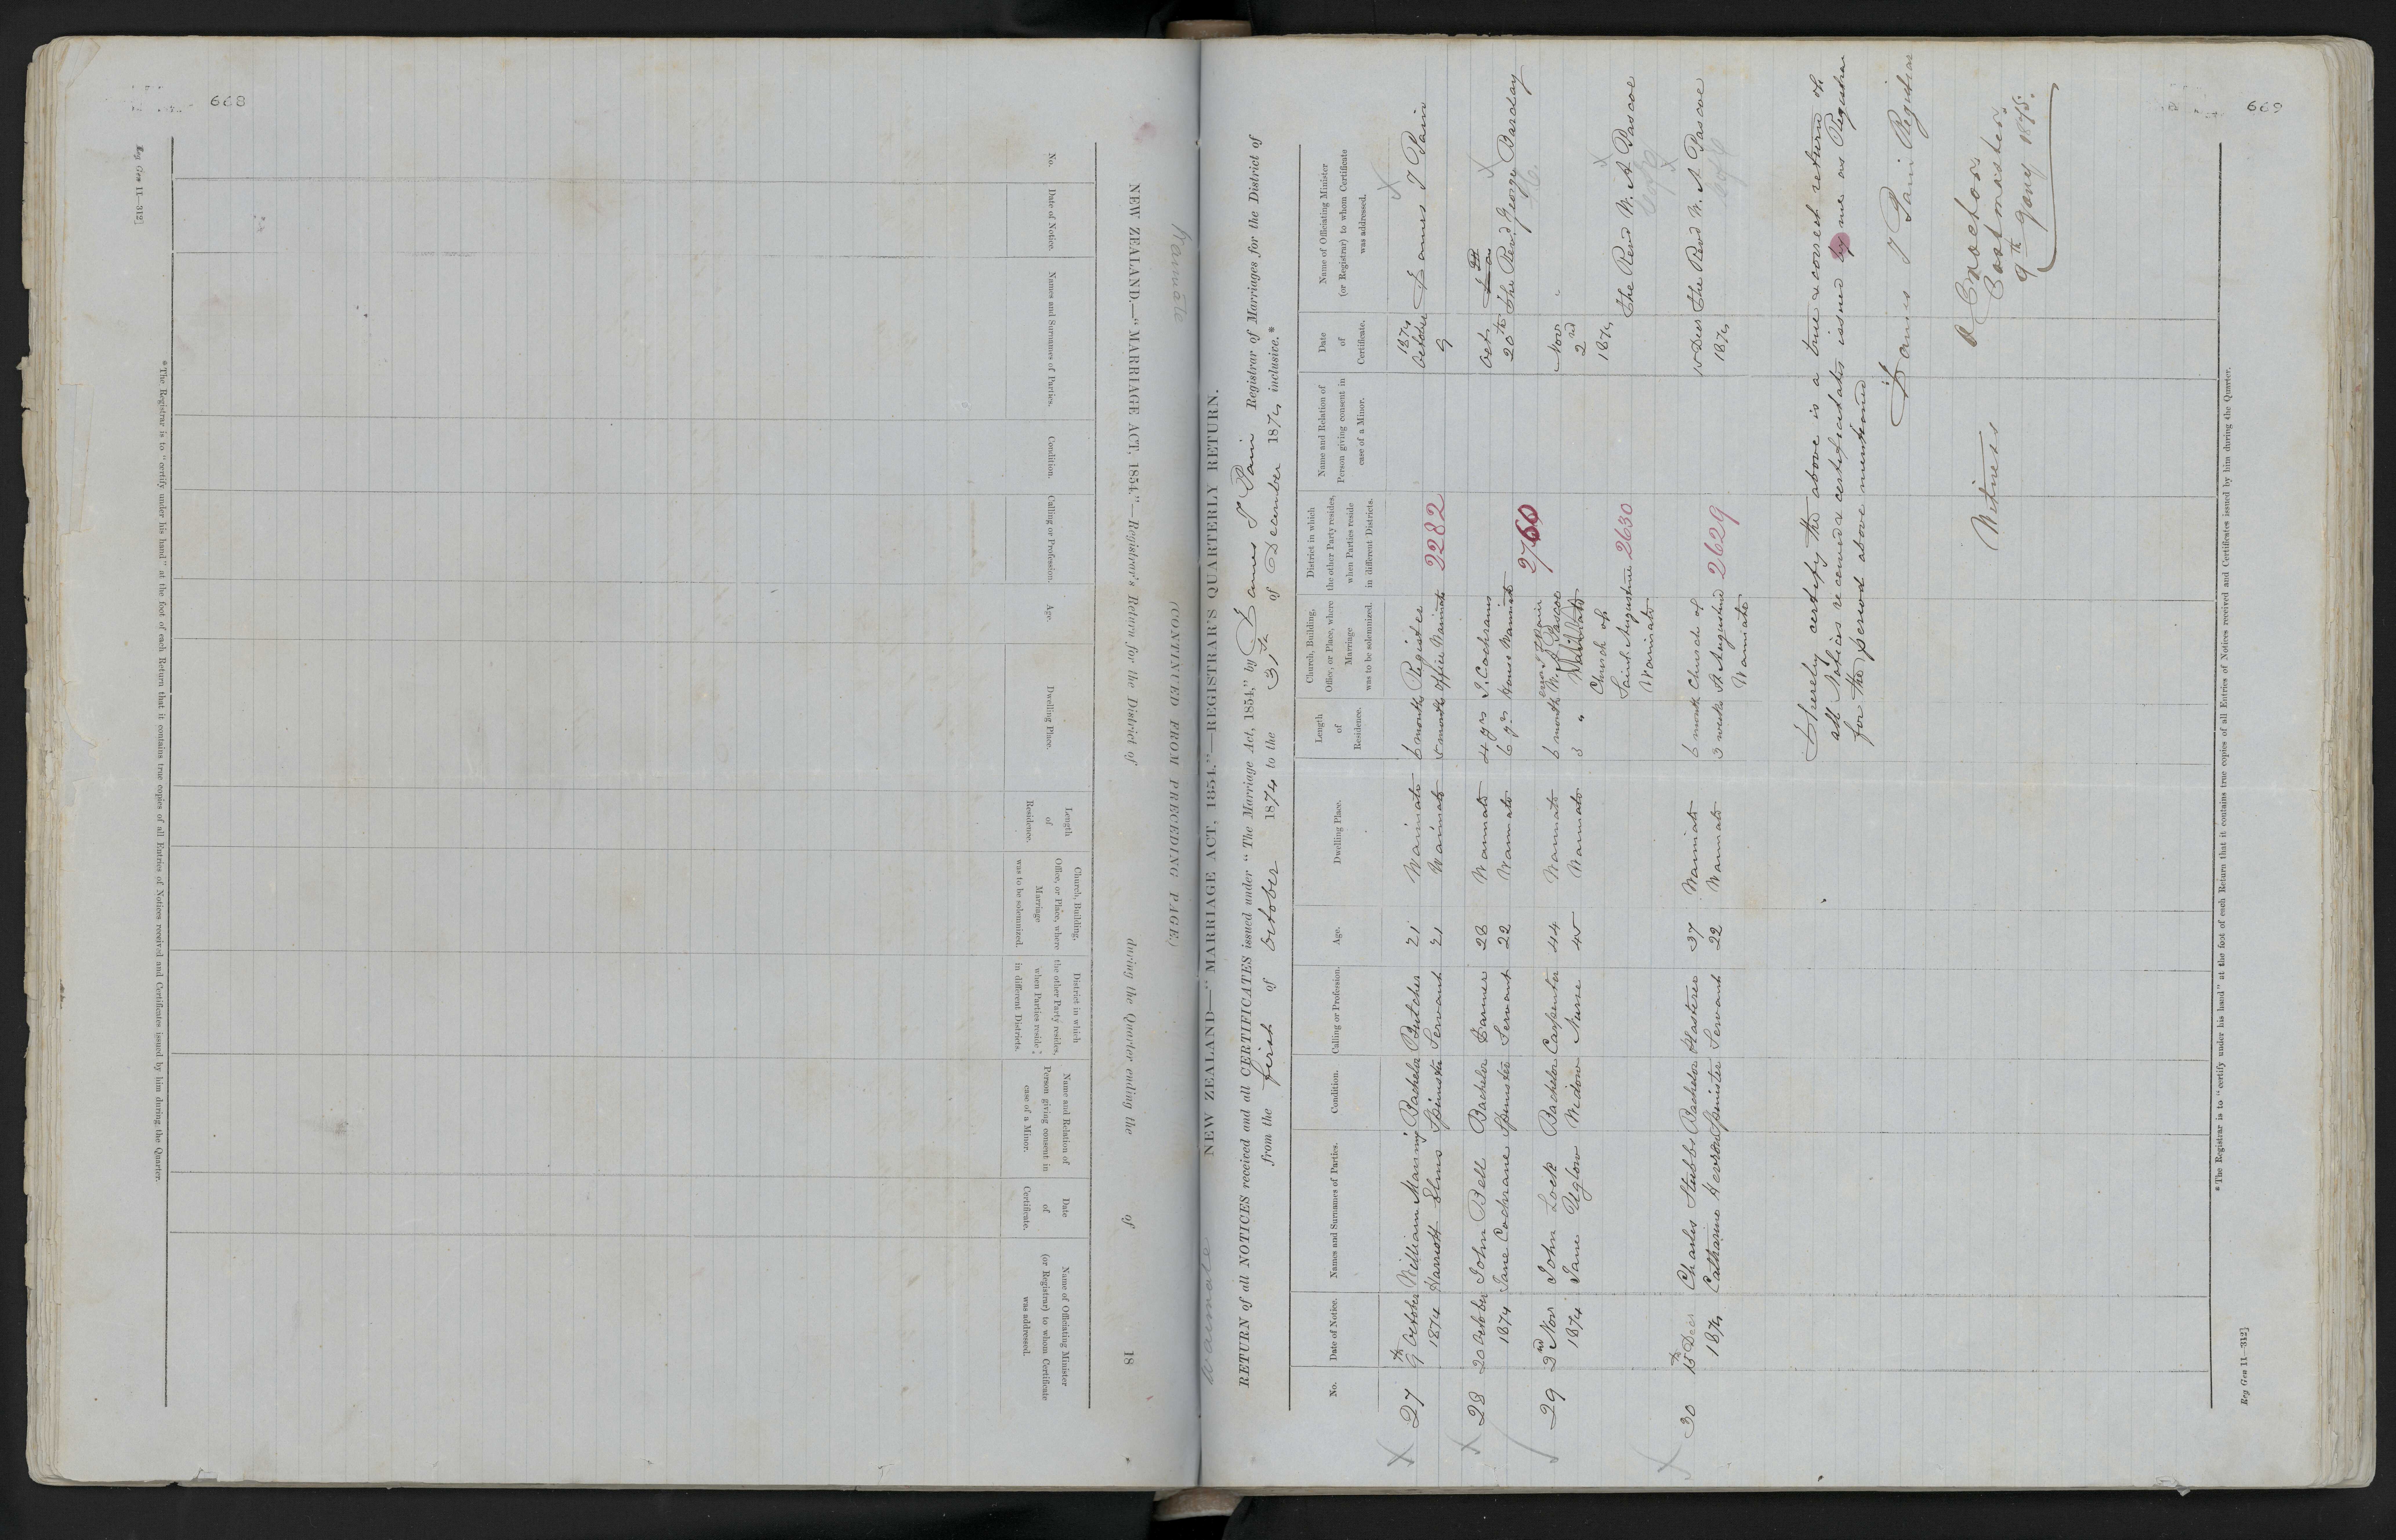 668
Reg Gen 11—312]
NEW ZEALAND.—"MARRIAGE ACT, 1854."—Registrar's Return for the District of Waimate during the Quarter ending the of 18
(CONTINUED FROM PRECEDING PAGE)
No.
Date of Notice.
Names and Surnames of Parties.
Condition.
Calling or Profession.
Age.
Dwelling Place.
Length of Residence.
Church, Building, Office, or Place, where Marriage was to be solemnized.
District in which the other Party resides, when Parties reside in different Districts.
Name and Relation of Person giving consent in case of a Minor.
Date of Certificate.
Name of Officiating Minister (or Registrar) to whom Certificate was addressed.
* The Registrar is to "certify under his hand" at the foot of each Return that it contains true copies of all Entries of Notices received and Certificates issued by him during the Quarter.
669
Waimate
NEW ZEALAND—"MARRIAGE ACT, 1854."—REGISTRAR'S QUARTERLY RETURN.
RETURN of all NOTICES received and all CERTIFICATES issued under "The Marriage Act, 1854," by James T Pain Registrar of Marriages for the District of
from the first of October 1874 to the 31st of December 1874 inclusive.*
No.
Date of Notice.
Names and Surnames of Parties.
Condition.
Calling or Profession.
Age.
Dwelling Place.
Length of Residence.
Church, Building, Office, or Place, where Marriage was to be solemnized.
District in which the other Party resides, when Parties reside in different Districts.
Name and Relation of Person giving consent in case of a Minor.
Date of Certificate.
Name of Officiating Minister (or Registrar) to whom Certificate was addressed.
27 9th October William Manning Bachelor Butcher 21 Waimate 6 months Register 1874 October James T Pain
1874 Harriott Elms Spinster Servant 21 Waimate 5 months Office Waimate 2282 9
28 20 October John Bell Bachelor Farmer 28 Waimate 4 yrs J. Cochrane Octr
1874 Jane Cochrane Spinster Servant 22 Waimate 6 yrs House Waimate 2760 20th The Revd George Barclay
29 2nd Novr John Lock Bachelor Carpenter 44 Waimate 6 months W. A Pascoe Novr "
1874 Jane Uglow Widow Nurse 45 Waimate 3 " 2nd
Church of 1874
Saint Augustine 2630 The Revd W. A Pascoe
Waimate
30 15th Decr Charles Stubbs Bachelor Plasterer 37 Waimate 6 months Church of 15 Decr The Revd W. A Pascoe
1874 Catharine Spinster Servant 22 Waimate 3 weeks St Augustine 2629 1874
Waimate
I hereby certify the above is a true & correct return of
all Notices received & certificates issued by me as Registrar
for the period above mentioned
James T Pain Registrar
Witness
Postmaster
9th Jany 1875.
* The Registrar is to "certify under his hand" at the foot of each Return that it contains true copies of all Entries of Notices received and Certificates issued by him during the Quarter.
Reg Gen 11—312]